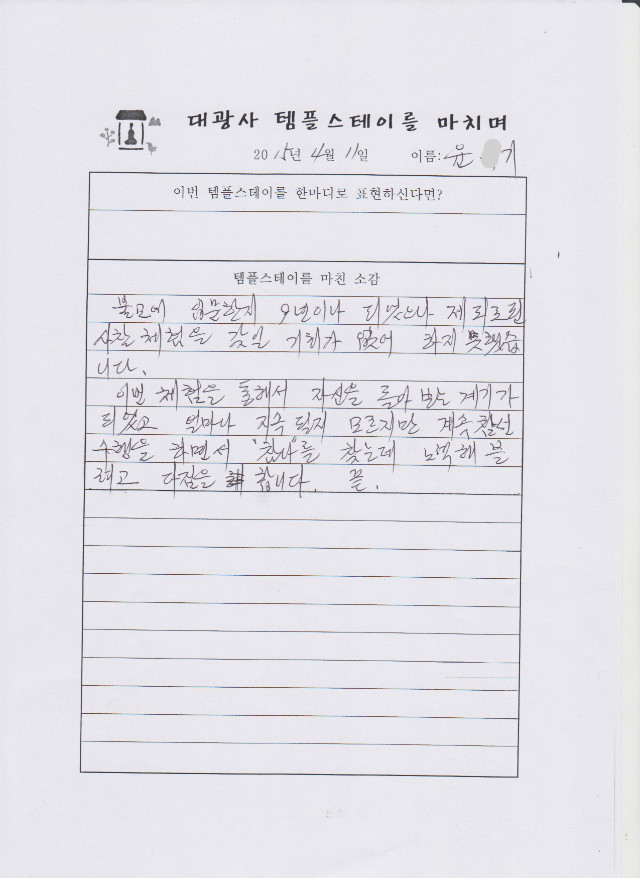 대광사 템플스테이를 마치며
2015년 4월 11일 이름: 윤 기
이번 템플스테이를 한마디로 표현하신다면?
템플스테이를 마친 소감
불교에 입문한지 9년이나 되었으나 제대로된
사찰 체험을 갖일 기회가 없어 하지 못했습
니다.
이번 체험을 통해서 자신을 돌아 보는 계기가
되었고 얼마나 지속 될지 모르지만 계속 참선
수행을 하면서 "참나"를 찾는데 노력해 볼
려고 다짐을 합니다. 끝.